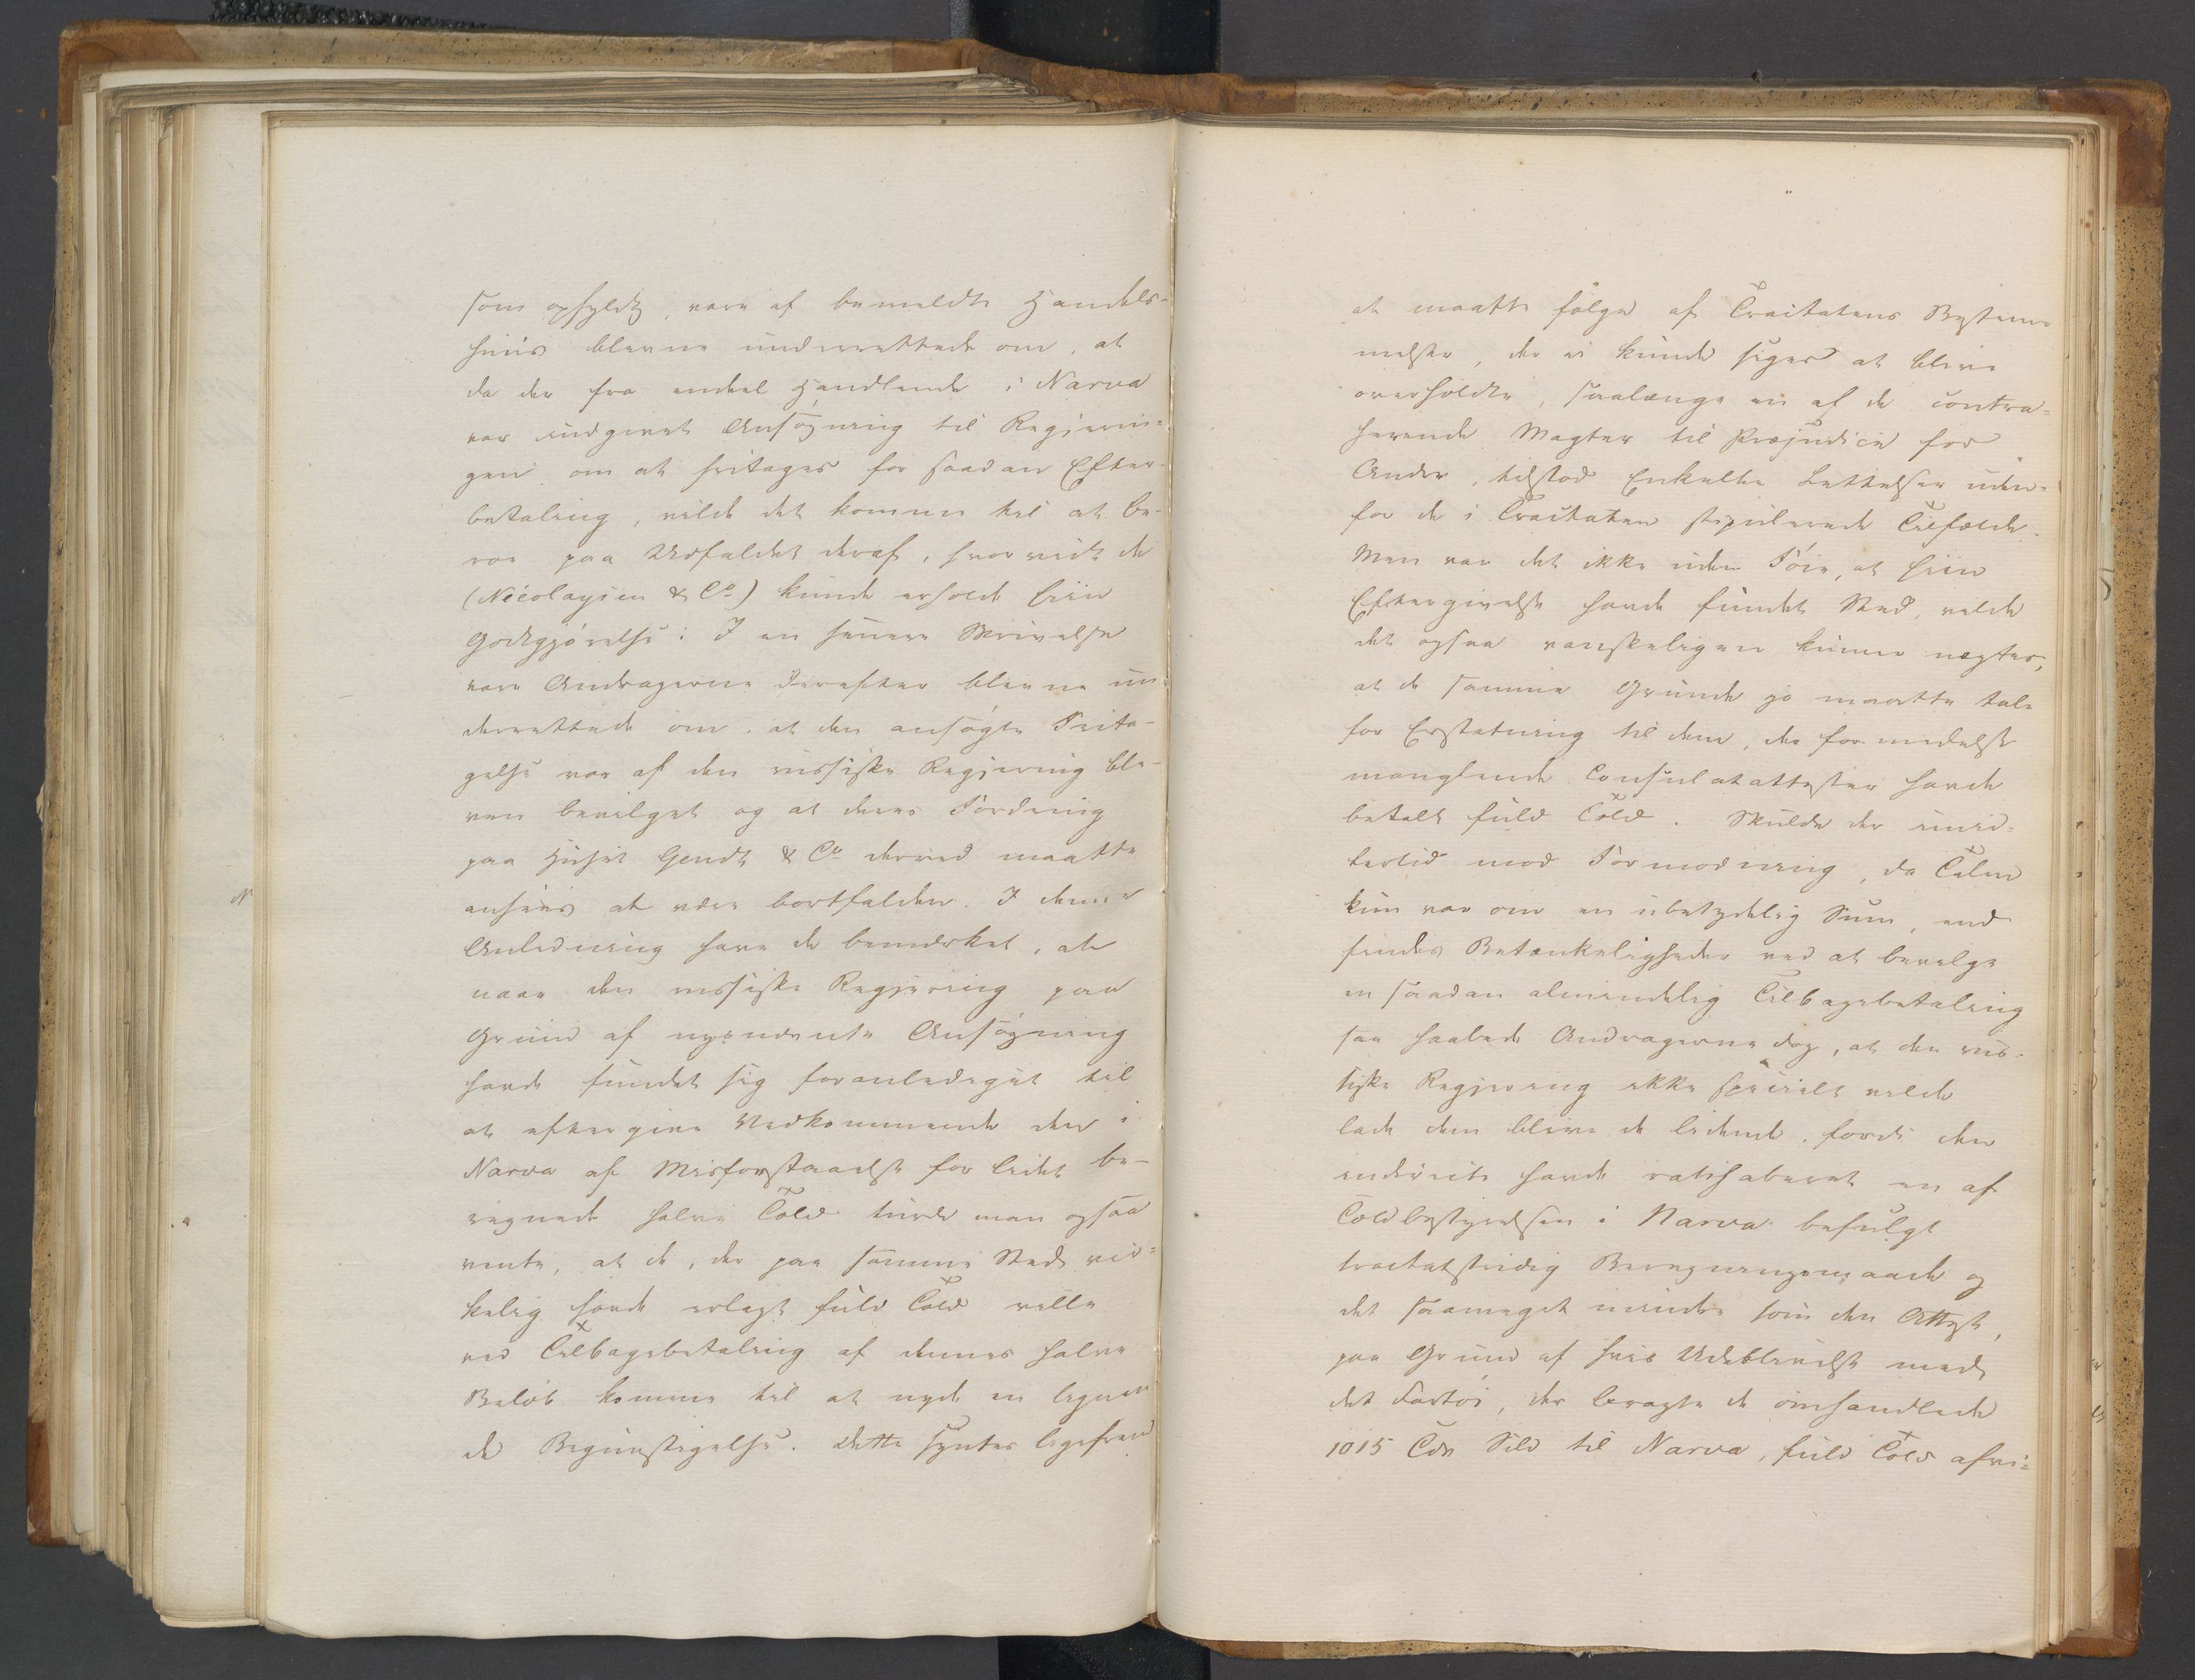 som opfyldtes, vare af bemeldte Handels-
huus blevne underrettede om, at
da der fra endeel Handlende i Narva
var indgivet Ansøgning til Regjerin-
gen om at fritages for saadan Efter-
betaling, vilde det komme til at be-
roe paa Udfaldet deraf, hvorvidt de
(Nicolaysen & Co) kunde erholde hiin
Godtgjørelse: I en senere Skrivelse
vare Andragerne derefter blevne un-
derrettede om, at den ansøgte Frita-
gelse var af den russiske Regjering ble-
ven bevilget og at deres Fordring
paa Huset Gendt & Co derved maatte
ansees at være bortfalden. I denne
Anledning have de bemærket, at
naar den russiske Regjering paa
Grund af nysnævnte Ansøgning
havde fundet sig foranlediget til
at eftergive Vedkommende den i
Narva af Misforstaaelse for lidet be-
regnede halve Told turde man ogsaa
vente, at de, der paa samme Sted vir-
kelig havde erlagt fuld Told ville
ved Tilbagebetaling af dennes halve
Beløb komme til at nyde en lignen
de Begunstigelse. Dette syntes ligefrem
at maatte følge af Tractatens Bestem-
melser, der ei kunde siges at blive
overholdte, saalænge en af de contra-
herende Magter til Præjudice for
Andre, tilstod Enkelte Lettelser uden-
for de i Tractaten stipulerede Tilfælde.
Men var det ikke uden Føie, at hiin
Eftergivelse havde fundet Sted, vilde
det ogsaa vanskeligen kunne nægtes,
at de samme Grunde jo maatte tale
for Erstatning til dem, der formedelst
manglende Consulatattester havde
betalt fuld Told. Skulde der imid-
lertid mod Formodning, da Talen
kun var om en ubetydelig Sum, end
findes Betænkeligheder ved at bevilge
en saadan almindelig Tilbagebetaling
saa haabede Andragerne dog, at den rus-
siske Regjering ikke specielt vilde
lade dem blive de lidende, fordi den
indirecte havde ratihaberet en af
Toldbestyrelsen i Narva befulgt
tractatstridig Beregningsmaade og
det saameget mindre som den Attest,
paa Grund af hvis Udeblivelse med
det Fartøi, der bragte de omhandlede
1015 Tdr Sild til Narva, fuld Told afvi-